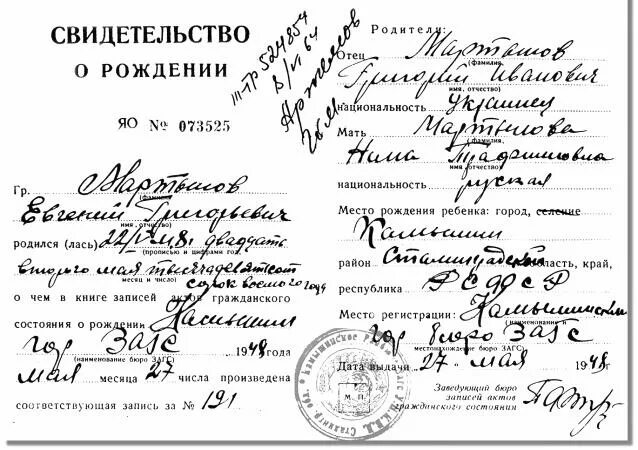 СВИДЕТЕЛЬСТВО
О РОЖДЕНИИ
ЯО № 073525
III-ТР 524854
Гр. Мартышов
(фамилия)
Евгений Григорьевич
имя, отчество)
родился (лась) 22/V-48. двадцать
(прописью и цифрами год,
второго мая тысяча девятсот
месяц и число)
сорок восмого года
о чем в книге записей актов гражданского
состояния о рождении Камышин
гор ЗАГС 1948 года
(наименование бюро ЗАГС)
мая месяца 27 числа произведена
соответствующая запись за № 191
Родители:
Отец Мартышов
(фамилия,
Григорий Иванович
имя, отчество)
национальность Украинец
Мать Мартышова
(фамилия,
Нина Трафимовна
имя, отчество)
национальность руская
Место рождения ребенка: город, селение
Камышин
район Сталинградской область, край,
республика РСФСР
Место регистрации: Камышинский
(наименование и
гор бюро ЗАГС
местонахождение бюро ЗАГС)
Дата выдачи 27 мая 1948 г.
М. П.
Заведующий бюро
записей актов
гражданского состояния